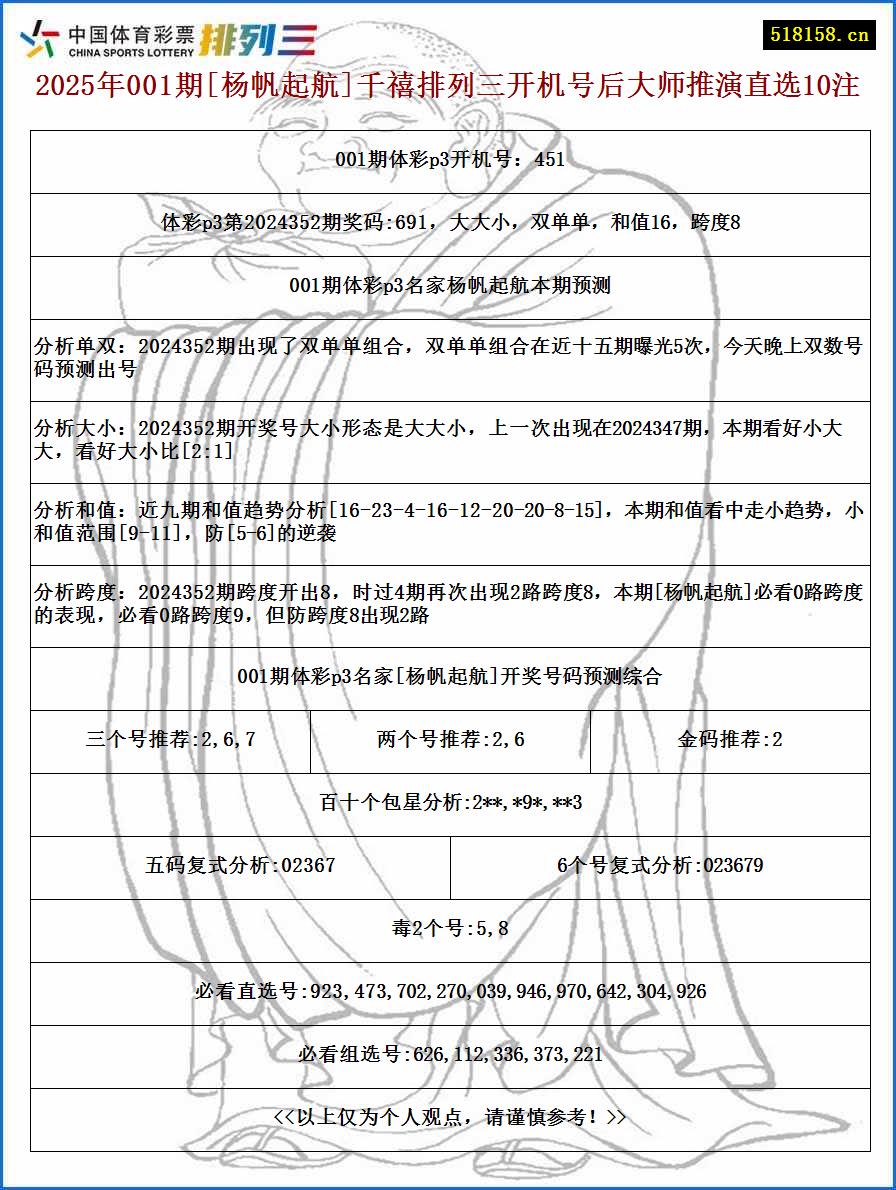 中国体育彩票
CHINA SPORTS LOTTERY
排列三
518158.cn
2025年001期[杨帆起航]千禧排列三开机号后大师推演直选10注
001期体彩p3开机号：451
体彩p3第2024352期奖码:691，大大小，双单单，和值16，跨度8
001期体彩p3名家杨帆起航本期预测
分析单双：2024352期出现了双单单组合，双单单组合在近十五期曝光5次，今天晚上双数号
码预测出号
分析大小：2024352期开奖号大小形态是大大小，上一次出现在2024347期，本期看好小大
大，看好大小比[2:1]
分析和值：近九期和值趋势分析[16-23-4-16-12-20-20-8-15]，本期和值看中走小趋势，小
和值范围[9-11]，防[5-6]的逆袭
分析跨度：2024352期跨度开出8，时过4期再次出现2路跨度8，本期[杨帆起航]必看0路跨度
的表现，必看0路跨度9，但防跨度8出现2路
001期体彩p3名家[杨帆起航]开奖号码预测综合
三个号推荐:2,6,7
两个号推荐:2,6
金码推荐:2
百十个包星分析:2**,*9*,**3
五码复式分析:02367
6个号复式分析:023679
毒2个号:5,8
必看直选号:923,473,702,270,039,946,970,642,304,926
必看组选号:626,112,336,373,221
<<以上仅为个人观点，请谨慎参考！>>